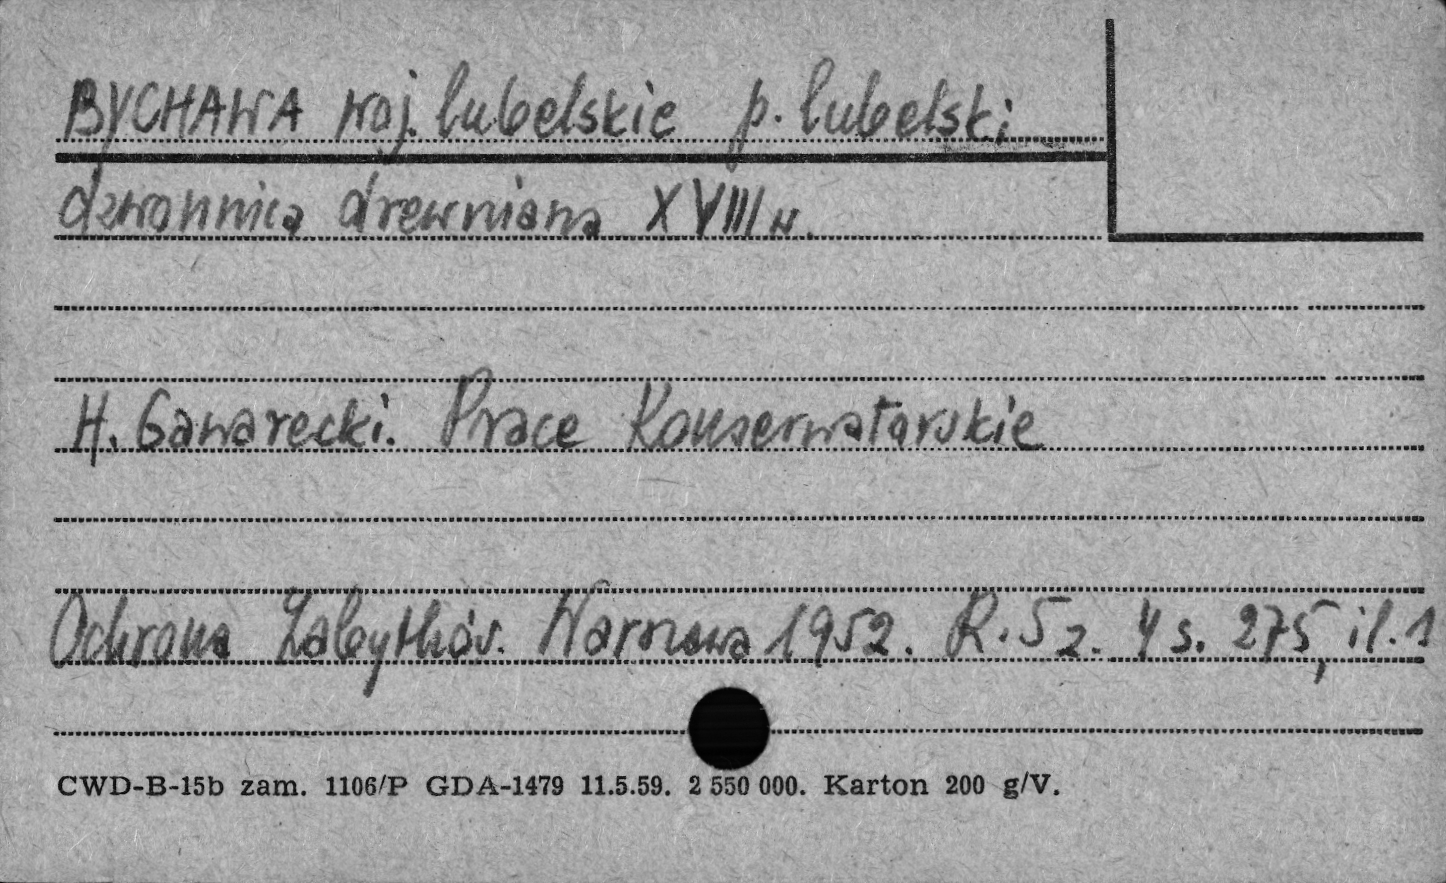 BYCHAWA woj. lubelskie p. lubelski
dzwonnica drewniana XVIII w.
H. Gawarecki. Prace Konserwatorskie
Ochrona Zabytków. Warszawa 1952. R. 5 z. 4 s. 275, il. 1
CWD-B-15b zam. 1106/P GDA-1479 11.5.59. 2 550 000. Karton 200 g/V.